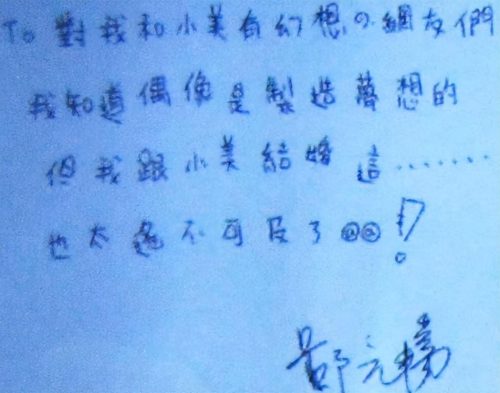 To 對我和小美有幻想の網友們
我知道偶像是製造夢想的
但我跟小美結婚 這.......
也太遙不可及了@@!
鄭元暢